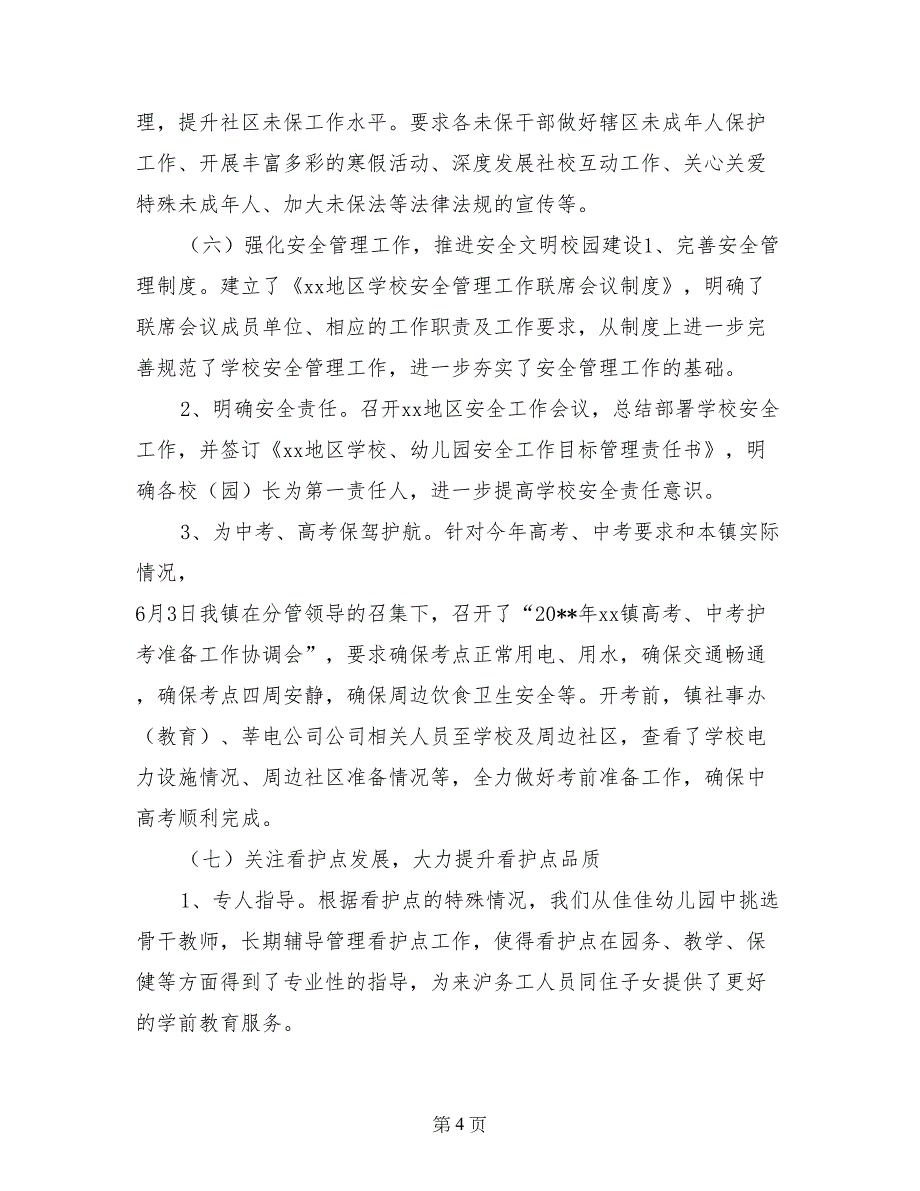 理，提升社区未保工作水平。要求各未保干部做好辖区未成年人保护
工作、开展丰富多彩的寒假活动、深度发展社校互动工作、关心关爱
特殊未成年人、加大未保法等法律法规的宣传等。
（六）强化安全管理工作，推进安全文明校园建设1、完善安全管
理制度。建立了《xx地区学校安全管理工作联席会议制度》，明确了
联席会议成员单位、相应的工作职责及工作要求，从制度上进一步完
善规范了学校安全管理工作，进一步夯实了安全管理工作的基础。
2、明确安全责任。召开xx地区安全工作会议，总结部署学校安全
工作，并签订《xx地区学校、幼儿园安全工作目标管理责任书》，明
确各校（园）长为第一责任人，进一步提高学校安全责任意识。
3、为中考、高考保驾护航。针对今年高考、中考要求和本镇实际
情况，
6月3日我镇在分管领导的召集下，召开了“20**年xx镇高考、中考护
考准备工作协调会”，要求确保考点正常用电、用水，确保交通畅通
，确保考点四周安静，确保周边饮食卫生安全等。开考前，镇社事办
（教育）、莘电公司公司相关人员至学校及周边社区，查看了学校电
力设施情况、周边社区准备情况等，全力做好考前准备工作，确保中
高考顺利完成。
（七）关注看护点发展，大力提升看护点品质
1、专人指导。根据看护点的特殊情况，我们从佳佳幼儿园中挑选
骨干教师，长期辅导管理看护点工作，使得看护点在园务、教学、保
健等方面得到了专业性的指导，为来沪务工人员同住子女提供了更好
的学前教育服务。
第 4 页